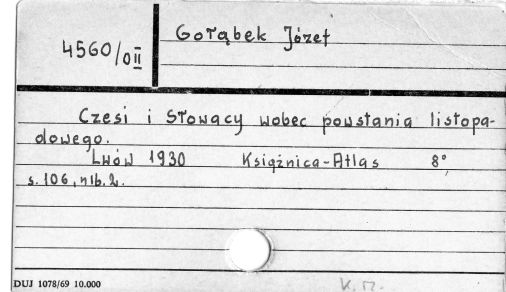 Gołąbek Józef
4560/0II
Czesi i Słowacy wobec powstania listopa-
dowego.
Lwów 1930 Książnica-Atlas 8°
s. 106, nlb. 2.
DUJ 1078/69 10.000
K. M.